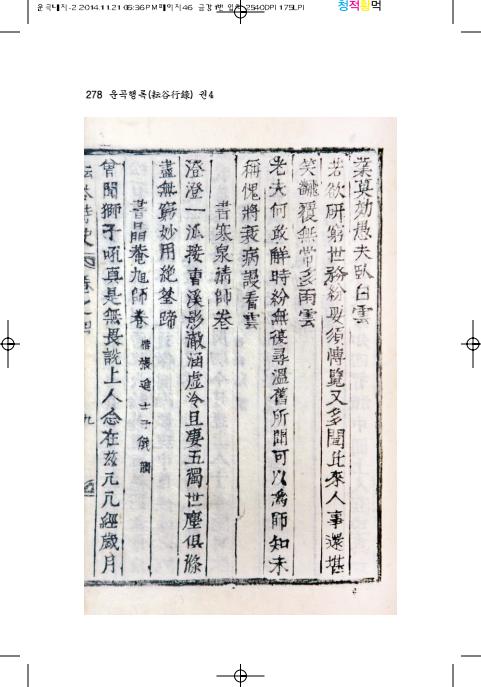 2014.11.21 05:36 PM 페이지46 2540DPI 175LPI
청적황먹
278 운곡행록(耘谷行錄) 권4
葉莫効愚夫臥白雲
若欲研窮世務紛要須博覽又多聞比來人事還堪
笑飜覆無常多雨雲
老夫何敢解時紛無復尋溫舊所聞可以爲師知未
稱愧將衰病謾看雲
書寒泉清師卷
澄澄一派接曹溪影澈涵虛冷且凄五濁世塵俱滌
盡無窮妙用絶荃蹄
書晶菴旭師卷 張進士子儀韻
曾聞獅子吼真是無畏說上人念在茲兀兀經歲月
耘谷詩史 卷之四 九